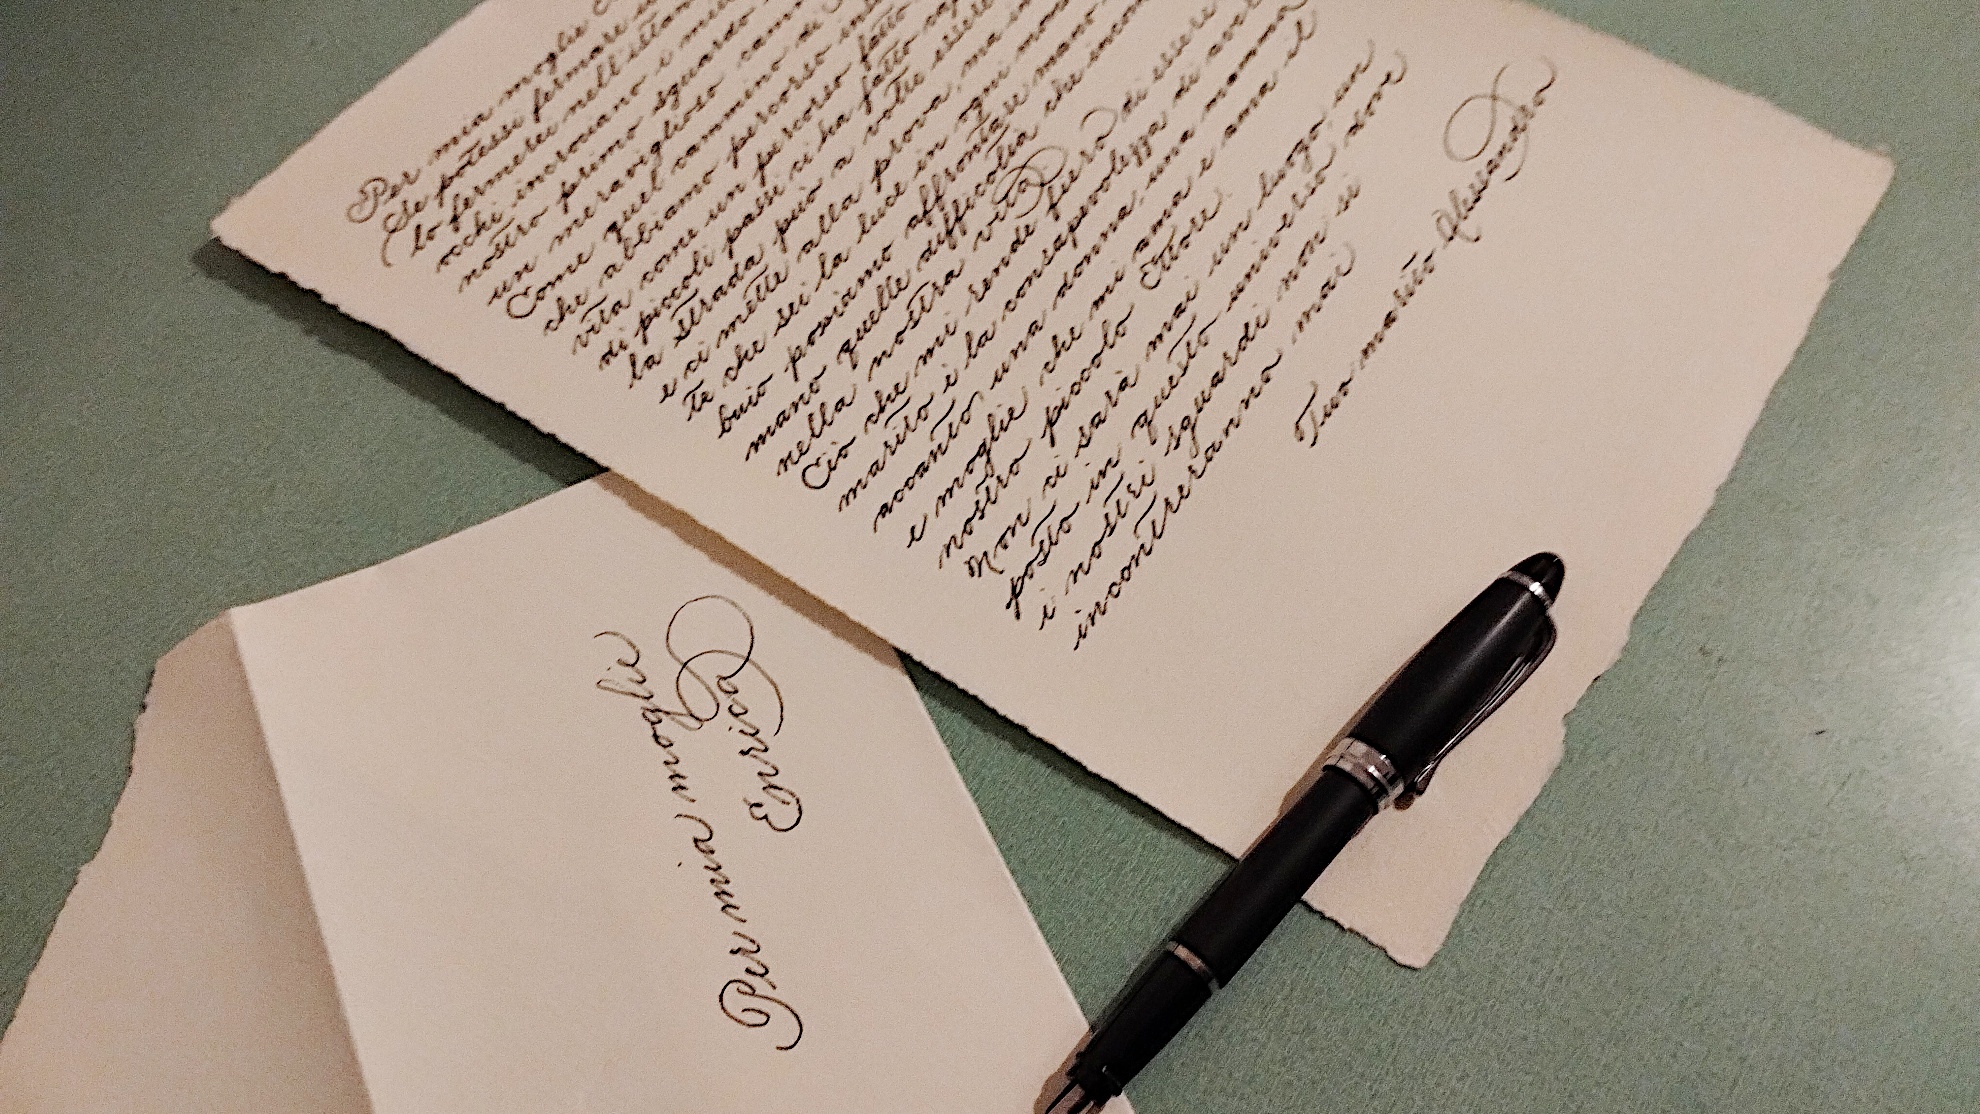 Per mia moglie
Se potessi fermare
lo fermerei nell'istan
occhi incrociano i miei
nostro primo sguardo
un meraviglioso cam
Come quel cammino di
che abbiamo percorso in
vita come un percorso fatto
di piccoli passi ci ha fatto cap
la strada può a volte essere
e ci mette alla prova, ma in
te che sei la luce in ogni mom
buio possiamo affrontare mano
mano quelle difficoltà che incon
nella nostra vita
Ciò che mi rende fiero di essere
marito è la consapevolezza di aver
accanto una donna, una mamma
e moglie che mi ama e ama il
nostro piccolo Ettore.
Non ci sarà mai un luogo, un
posto in questo universo dove
i nostri sguardi non si
incontreranno mai
Tuo marito Alessandro
Per mia moglie
Enrica